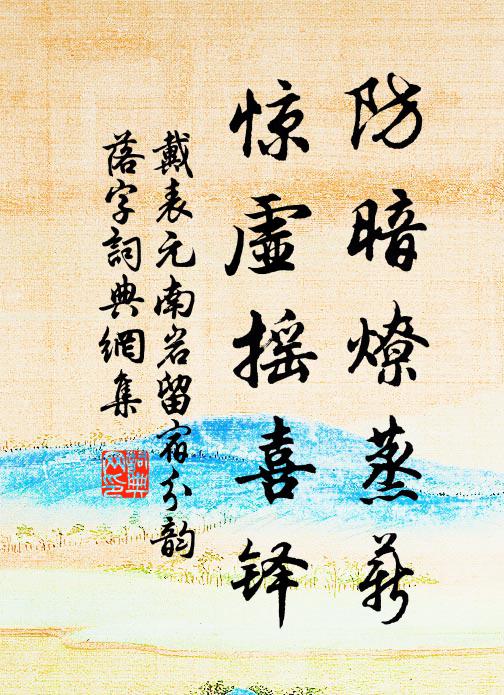 防暗燎蒸薪
惊虚摇喜铎
戴表元南岩留宿分韵
落字詞典網集